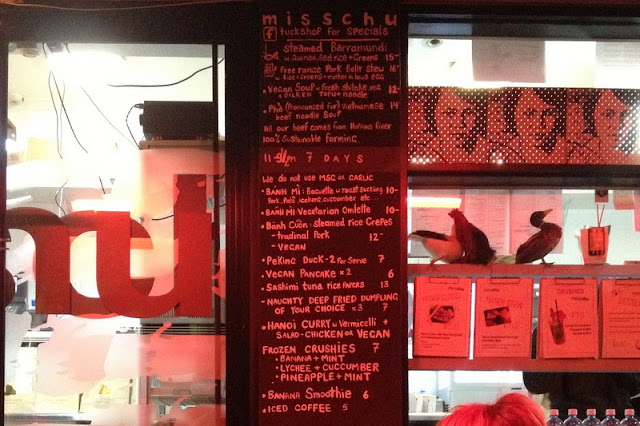 misschu
tuckshop for SPECIALS
steamed Barramundi
w. Quinoa, Red rice + Greens 15-
Free range Pork Belly Stew 16-
w. Rice + Greens +
egg
• Vegan Soup w. Fresh shitake, veg 12-
+ SILKEN TOFU + noodle
• Phở (Pronounced fur) Vietnamese 14
beef noodle soup
All our beef comes from Hopkins River
100% Sustainable farming.
11- 7 DAYS
We do not use MSG or GARLIC
• BÁNH Mì: Baguette w roast suckling 10-
Pork, Pate, cucumber etc
• BÁNH Mì Vegetarian Omlette 10-
• Bánh Cuốn: steamed rice Crepes
- tradinal Pork 12-
- VEGAN
• PeKing Duck - 2 Per Serve 7
• VEGAN PANCAKE x 2 6
• Sashimi tuna rice PAPERS 13
- NAUGHTY DEEP FRIED DUMPLING
OF YOUR CHOICE x 3 7
• HANOI CURRY w Vermicelli +
SALAD - CHICKEN OR VEGAN
FROZEN CRUSHIES 7
• BANANA + MINT
• LYCHEE + CUCCUMBER
• PINEAPPLE + MINT
• BANANA Smoothie 6
• ICED COFFEE 5
CRUSHIES